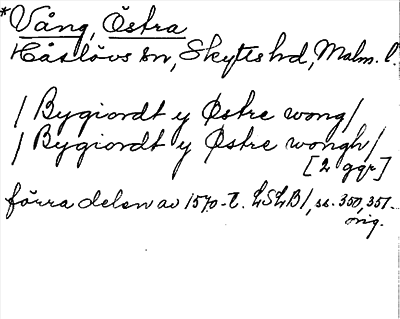 *Vång, Östra
Håslövs sn, Skytts hd, Malm. l.
/Bygiordt y Østre wong/
/Bygiordt y Østre wongh/
[2 ggr]
förra delen av 1570-t. LSLB1, ss. 350, 351.
orig.